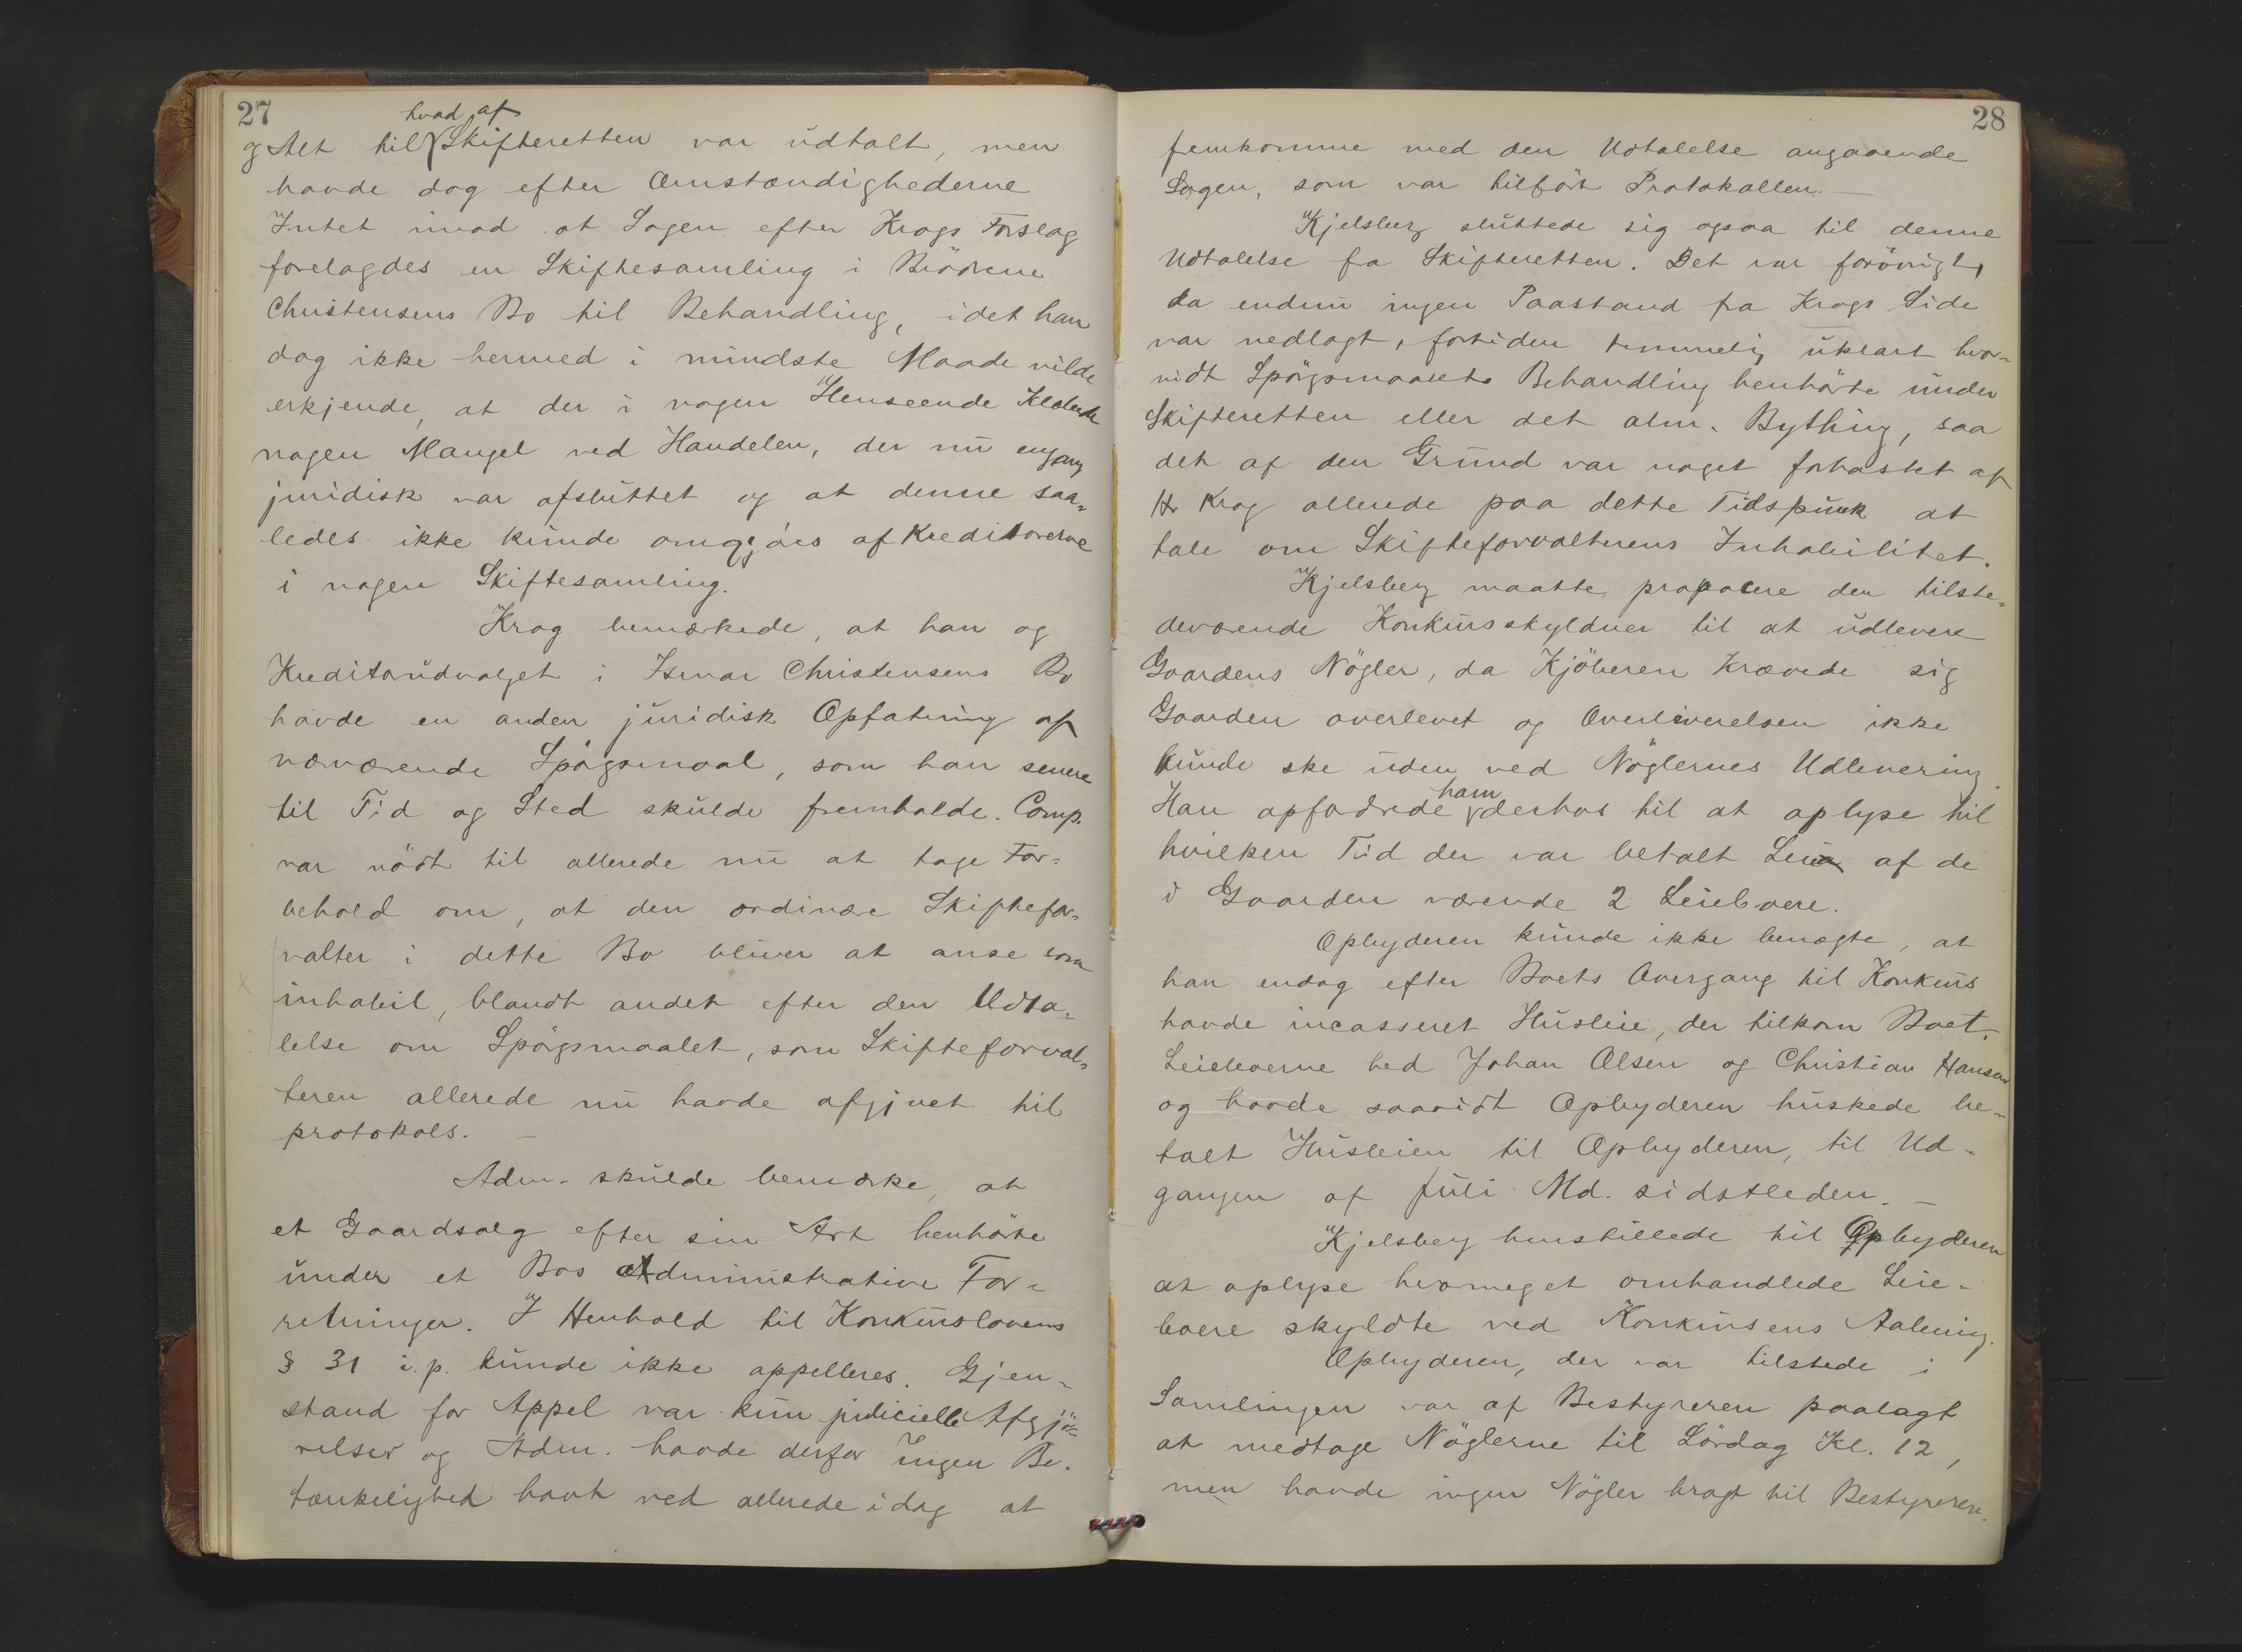 27
hvad af
g Alt til Skifteretten var udtalt, men
havde dog efter Omstændighederne
Intet imod at Sagen efter Krogs Forslag
forelagdes en Skiftesamling i Brödrene
Christensens Bo til Behandling, idet han
dog ikke hermed i mindste Maade vilde
erkjende, at der i nogen Henseende klæbede
nogen Mangel ved Handelen, der nu engang
juridisk var afsluttet og at denne saa-
ledes ikke kunde omgjöres af Kreditorerne
i nogen Skiftesamling.
Krog bemærkede, at han og
Kreditorudvalget i Ismar Christensens Bo
havde en anden juridisk Opfatning af
nærværende Spörgsmaal, som han senere
til Tid og Sted skulde fremholde. Comp.
var nödt til allerede nu at tage For-
behold om, at den ordinære Skiftefor-
valter i dette Bo bliver at anse som
inhabil, blandt andet efter den Udta-
lelse om Spörgsmaalet, som Skifteforval-
teren allerede nu havde afgivet til
protokols. —
Adm. skulde bemærke, at
et Gaardsalg efter sin Art henhörte
under et Bos Administrative For-
retninger. I Henhold til Konkurslovens
§ 31 i.p. kunde ikke appelleres. Gjen-
stand for Appel var kun judicielle Afgjö-
relser og Adm. havde derfor Ingen Be-
tænkelighed havt ved allerede idag at
28
fremkomme med den Udtalelse angaaende
Sagen, som var tilfört Protokollen. —
Kjelsberg sluttede sig ogsaa til denne
Udtalelse fra Skifteretten. Det var forövrigt,
da endnu ingen Paastand fra Krogs Side
var nedlagt, fortiden temmelig uklart hvor-
vidt Spörgsmaalets Behandling henhörte under
Skifteretten eller det alm. Bything, saa
det af den Grund var noget forhastet af
Hr Krog allerede paa dette Tidspunk at
tale om Skifteforvalterens Inhabilitet.
Kjelsberg maatte propocere den tilste-
deværende Konkursskyldner til at udlevere
Gaardens Nögler, da Kjöberen krævede sig
Gaarden overlevet og Overleverelsen ikke
kunde ske uden ved Nöglernes Udlevering.
ham
Han opfodrede derhos til at oplyse til
hvilken Tid der var betalt Leie af de
i Gaarden værende 2 Leieboere.
Opbyderen kunde ikke benægte, at
han endog efter Boets Overgang til Konkurs
havde incasseret Husleie, der tilkom Boet.
Leieboerne hed Johan Olsen og Christian Hansen
og havde saavidt Opbyderen huskede be-
talt Husleien til Opbyderen, til Ud-
gangen af Juli Md. sidstleden. —
Kjelsberg henstillede til Opbyderen
at oplyse hvormeget omhandlede Leie-
boere skyldte ved Konkursens Aabning.
Opbyderen, der var tilstede i
Samlingen var af Bestyreren paalagt
at medtage Nöglerne til Lördag Kl. 12,
men havde ingen Nögler bragt til Bestyreren.